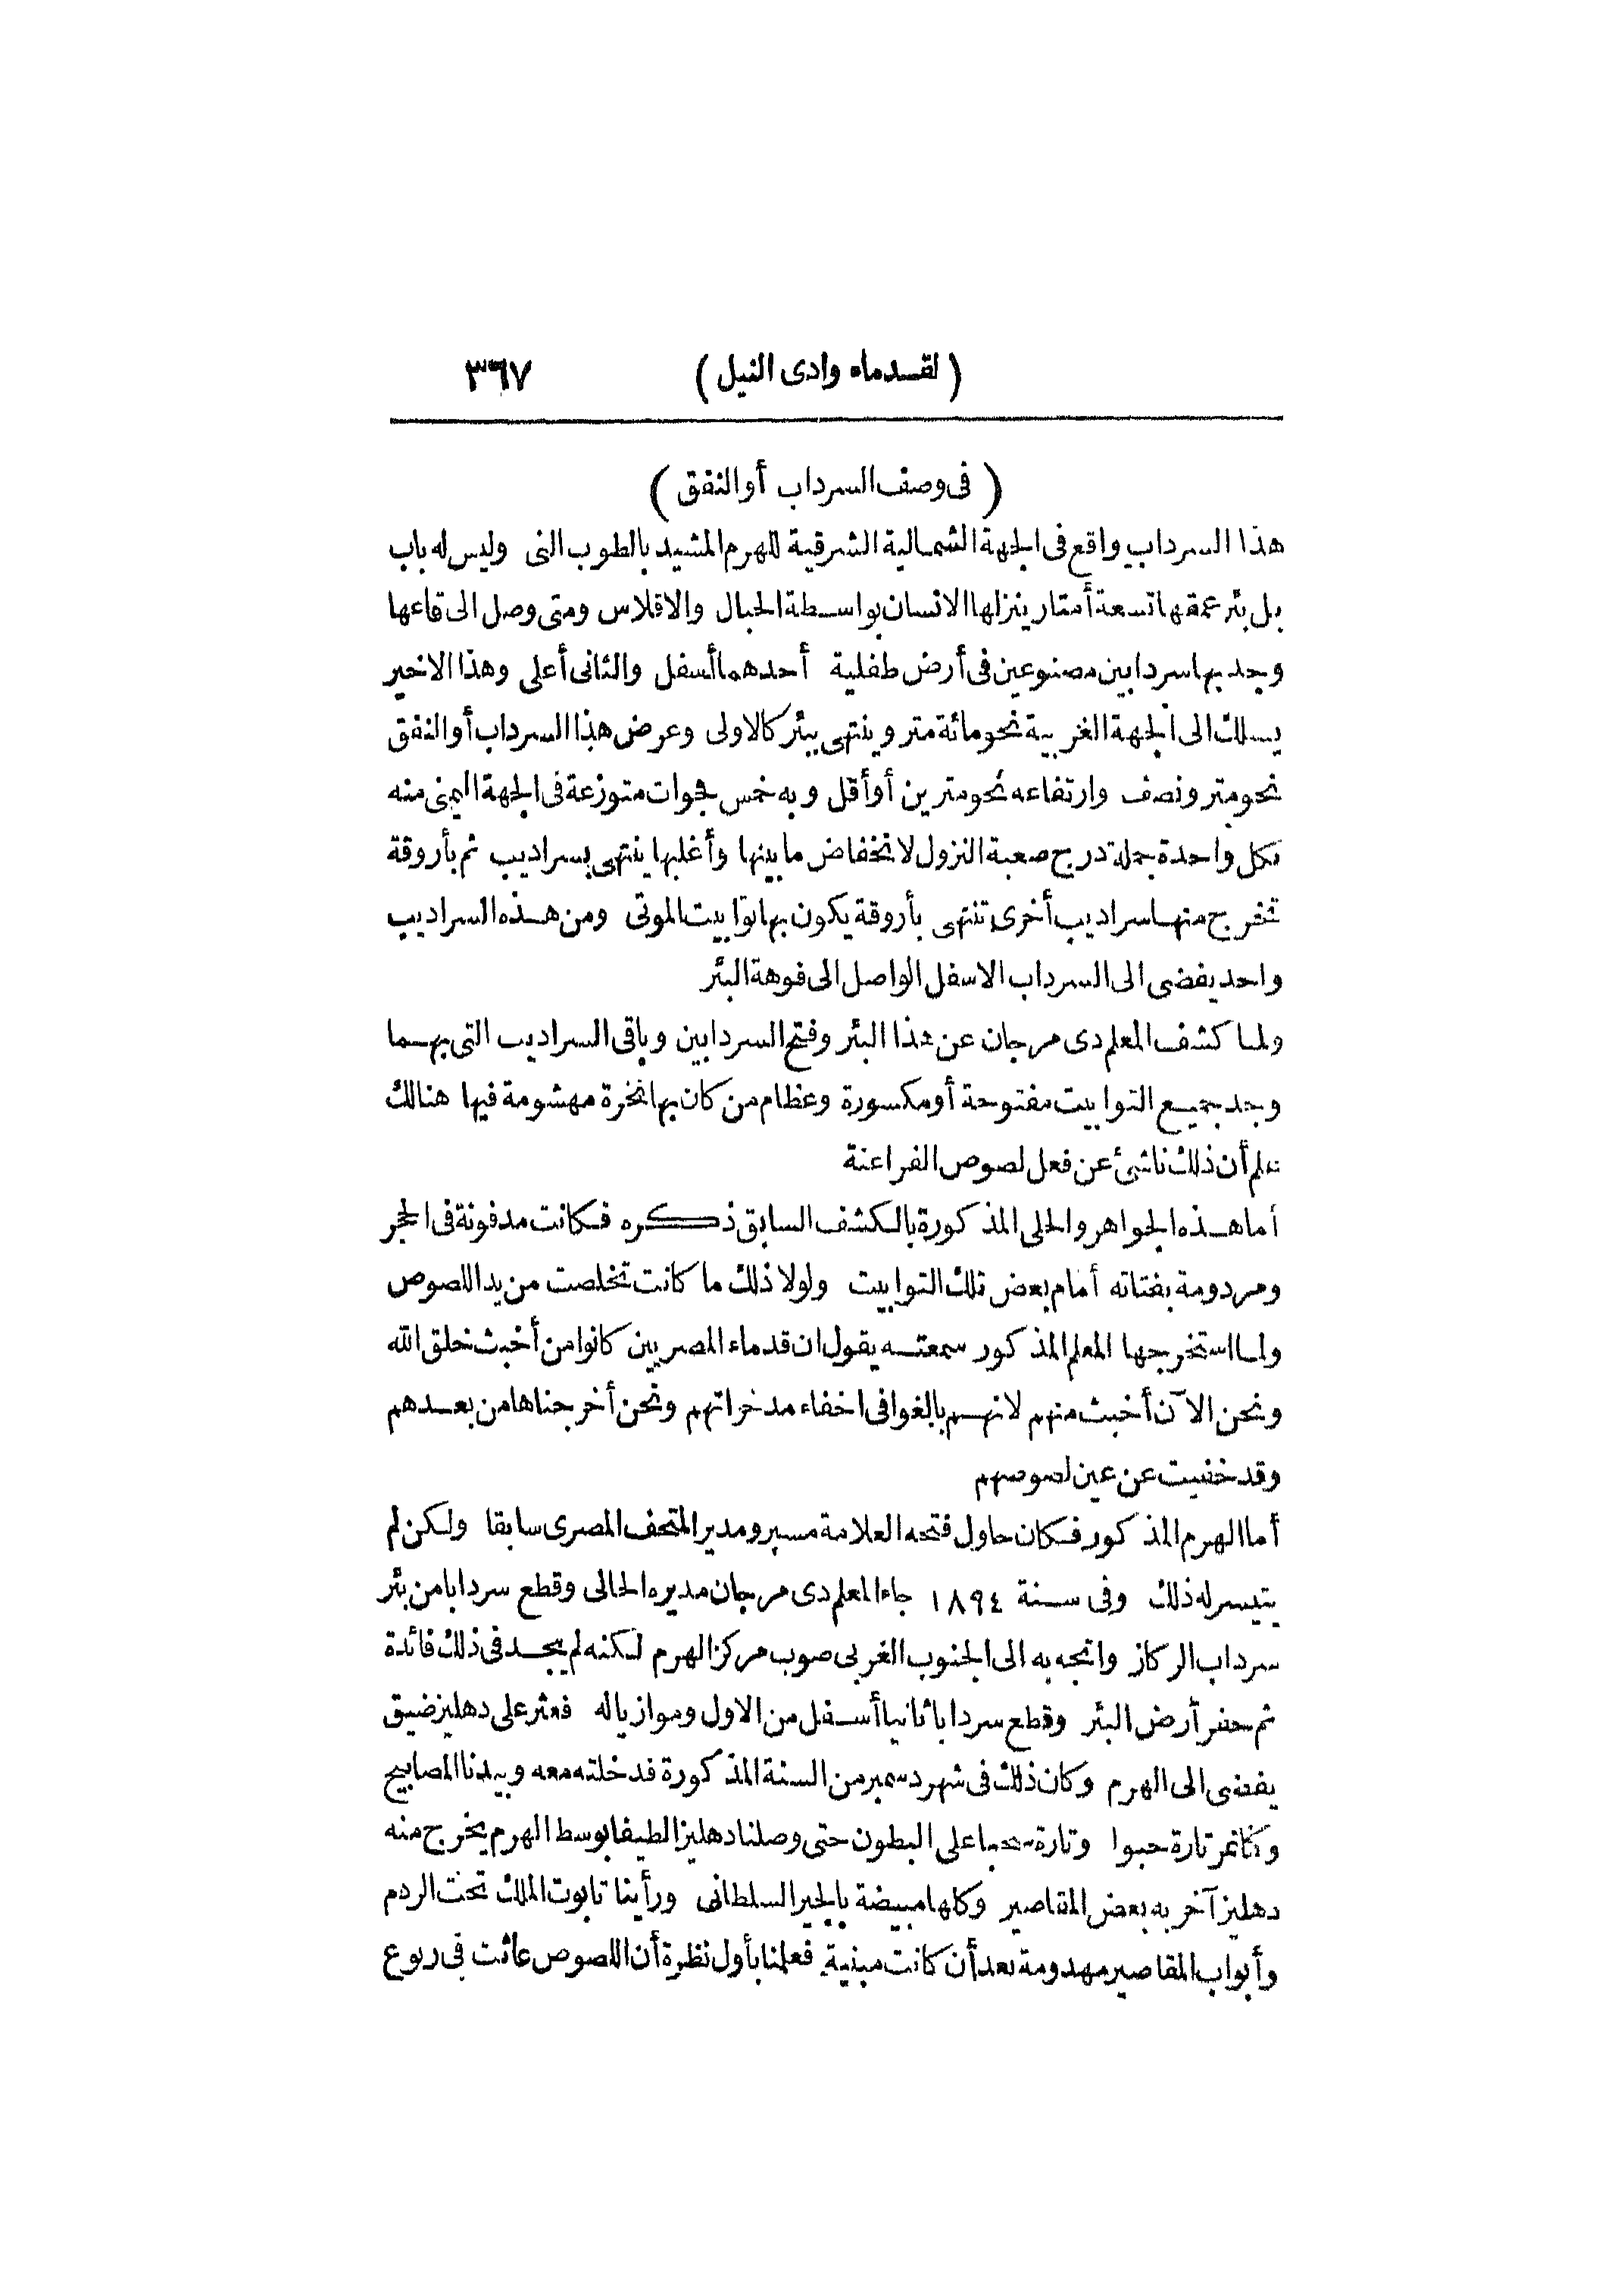 (لقدماء وادى النيل) ٣٦٧
(فى وصف السرداب أو النفق)
هذا السرداب واقع فى الجهة الشمالية الشرقية للهرم المشيد بالطوب النى وليس له باب
بل بئر عمقها تسعة أمتار ينزلها الانسان بواسطة الحبال والاقلاس ومتى وصل الى قاعها
وجد بها سردابين مصنوعين فى أرض طفلية أحدهما أسفل والثانى أعلى وهذا الاخير
يسلك الى الجهة الغربية نحو مائة متر وينتهى ببئر كالاولى وعرض هذا السرداب أو النفق
نحو متر ونصف وارتفاعه نحو مترين أو أقل وبه خمس فجوات متوزعة فى الجهة اليمنى منه
لكل واحدة جملة درج صعبة النزول لانخفاض ما بينها وأغلبها ينتهى بسراديب ثم بأروقة
تخرج منها سراديب أخرى تنتهى بأروقة يكون بها توابيت الموتى ومن هذه السراديب
واحد يفضى الى السرداب الاسفل الواصل الى فوهة البئر
ولما كشف المعلم دى مرجان عن هذا البئر وفتح السردابين وباقى السراديب التى بهما
وجد جميع التوابيت مفتوحة أو مكسورة وعظام من كان بها نخرة مهشومة فيها هنالك
علم أن ذلك ناشئ عن فعل لصوص الفراعنة
أما هذه الجواهر والحلى المذكورة بالكشف السابق ذكره فكانت مدفونة فى الحجر
ومردومة بفتاته أمام بعض تلك التوابيت ولولا ذلك ما كانت تخلصت من يد اللصوص
ولما استخرجها المعلم المذكور سمعته يقول ان قدماء المصريين كانوا من أخبث خلق الله
ونحن الآن أخبث منهم لانهم بالغوا فى اخفاء مدخراتهم ونحن أخرجناها من بعدهم
وقد خفيت عن عين لصوصهم
أما الهرم المذكور فكان حاول فتحه العلامة مسپرو مدير المتحف المصرى سابقا ولكن لم
يتيسر له ذلك وفى سنة ١٨٩٤ جاء المعلم دى مرجان مديره الحالى وقطع سردابا من بئر
سرداب الركاز واتجه به الى الجنوب الغربى صوب مركز الهرم لكنه لم يجد فى ذلك فائدة
ثم حفر أرض البئر وقطع سردابا ثانيا أسفل من الاول وموازيا له فعثر على دهليز ضيق
يفضى الى الهرم وكان ذلك فى شهر دسمبر من السنة المذكورة فدخلته معه وبيدنا المصابيح
وكنا نمر تارة حبوا وتارة سحبا على البطون حتى وصلنا دهليزا لطيفا بوسط الهرم يخرج منه
دهليز آخر به بعض المقاصير وكلها مبيضة بالجير السلطانى ورأينا تابوت الملك تحت الردم
وأبواب المقاصير مهدومة بعد أن كانت مبنية فعلمنا بأول نظرة أن اللصوص عاثت فى ربوع